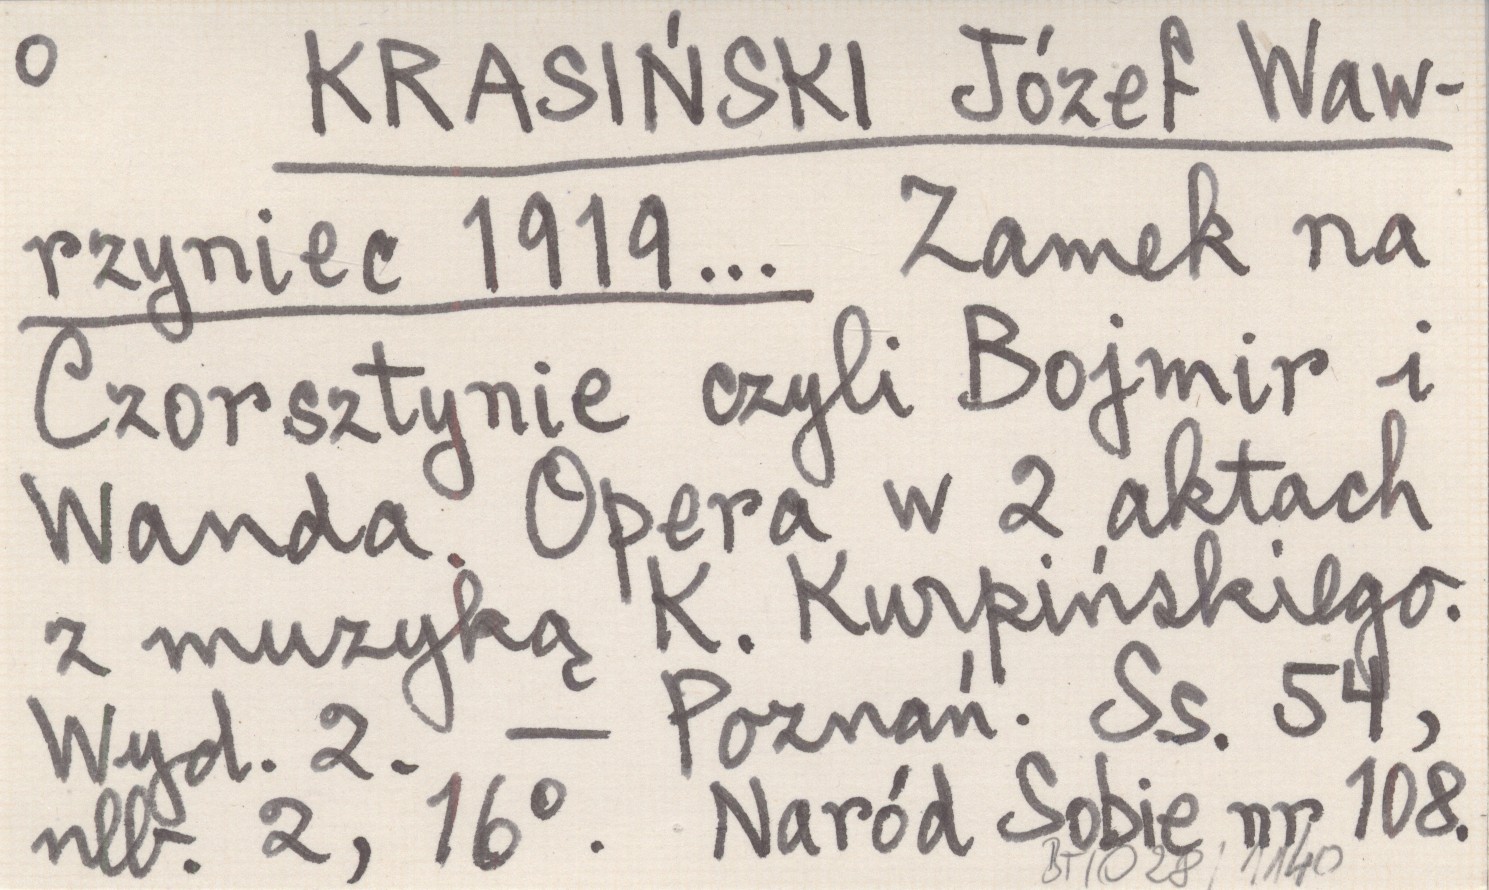 o KRASIŃSKI Józef Waw-
rzyniec 1919... Zamek na
Czorsztynie czyli Bojmir i
Wanda. Opera w 2 aktach
z muzyką K. Kurpińskiego.
Wyd. 2. — Poznań. Ss. 54,
nlb. 2, 16°. Naród Sobie nr 108.
BT/O 28/1140